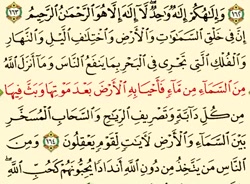 ﴿١٦٢﴾ وَإِلَٰهُكُمْ إِلَٰهٌ وَٰحِدٌ لَّآ إِلَٰهَ إِلَّا هُوَ ٱلرَّحْمَٰنُ ٱلرَّحِيمُ ﴿١٦٣﴾
إِنَّ فِى خَلْقِ ٱلسَّمَٰوَٰتِ وَٱلْأَرْضِ وَٱخْتِلَٰفِ ٱلَّيْلِ وَٱلنَّهَارِ
وَٱلْفُلْكِ ٱلَّتِى تَجْرِى فِى ٱلْبَحْرِ بِمَا يَنفَعُ ٱلنَّاسَ وَمَآ أَنزَلَ ٱللَّهُ
مِنَ ٱلسَّمَآءِ مِن مَّآءٍ فَأَحْيَا بِهِ ٱلْأَرْضَ بَعْدَ مَوْتِهَا وَبَثَّ فِيهَا
مِن كُلِّ دَآبَّةٍ وَتَصْرِيفِ ٱلرِّيَٰحِ وَٱلسَّحَابِ ٱلْمُسَخَّرِ
بَيْنَ ٱلسَّمَآءِ وَٱلْأَرْضِ لَءَايَٰتٍ لِّقَوْمٍ يَعْقِلُونَ ﴿١٦٤﴾ وَمِنَ
ٱلنَّاسِ مَن يَتَّخِذُ مِن دُونِ ٱللَّهِ أَندَادًا يُحِبُّونَهُمْ كَحُبِّ ٱللَّهِ ۖ